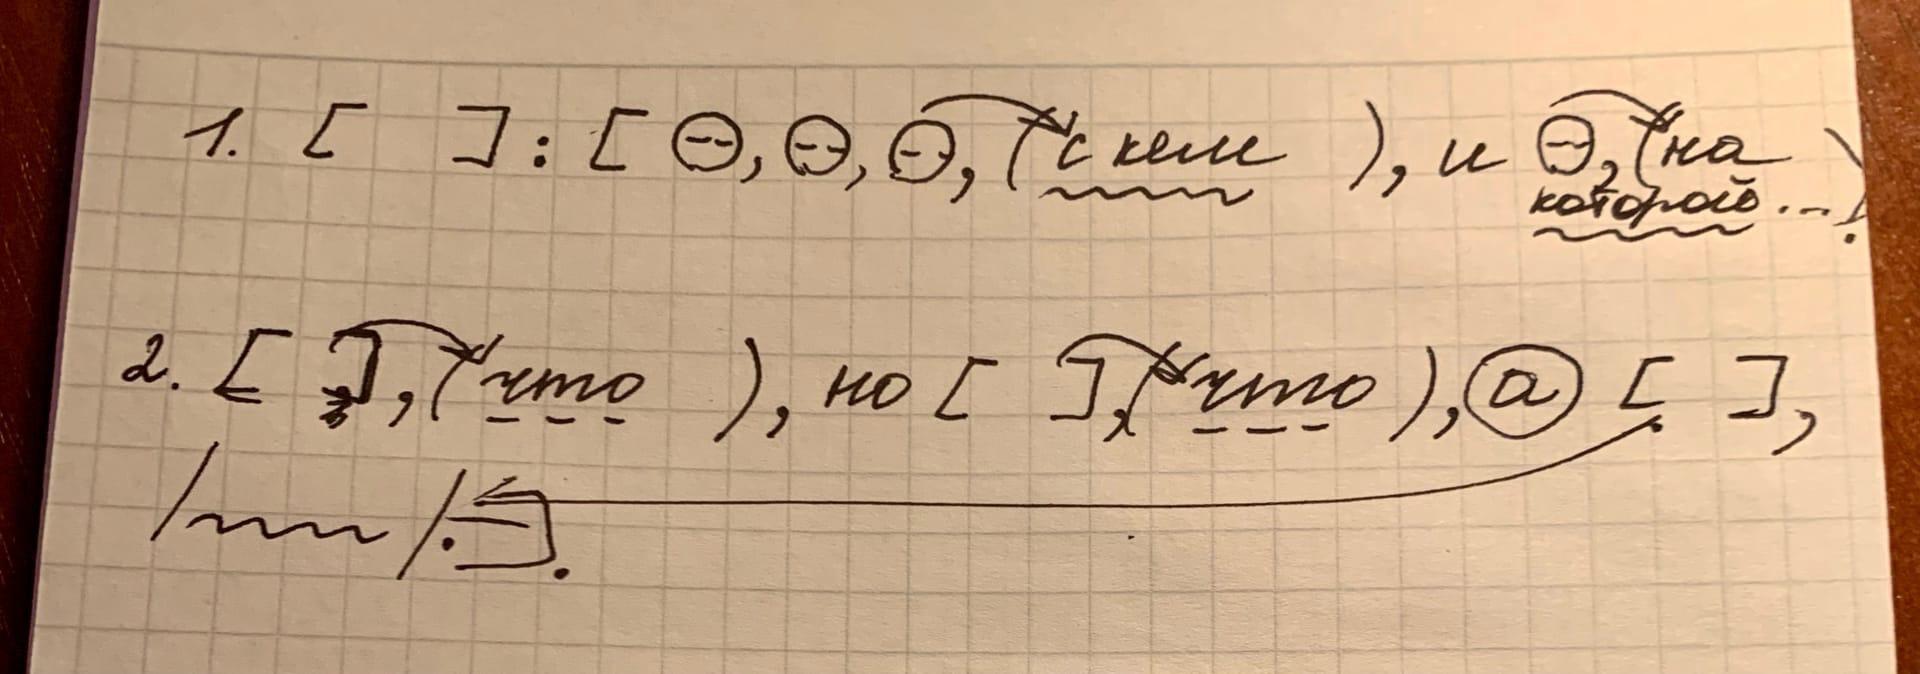 1. [ ] : [ ⊖, ⊖, ⊖, (с кем ), и ⊖, (на
которой...).
2. [ ], (что ), но [ ], (что ), а [ ],
/ /.